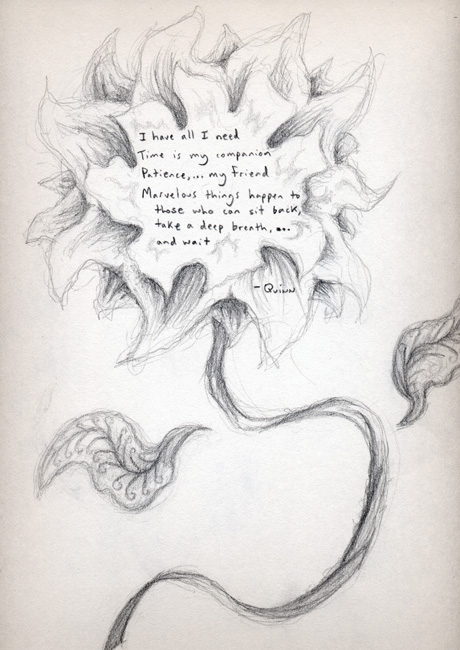 I have all I need
Time is my companion
Patience,... my friend
Marvelous things happen to
those who can sit back,
take a deep breath, ...
and wait
- Quinn